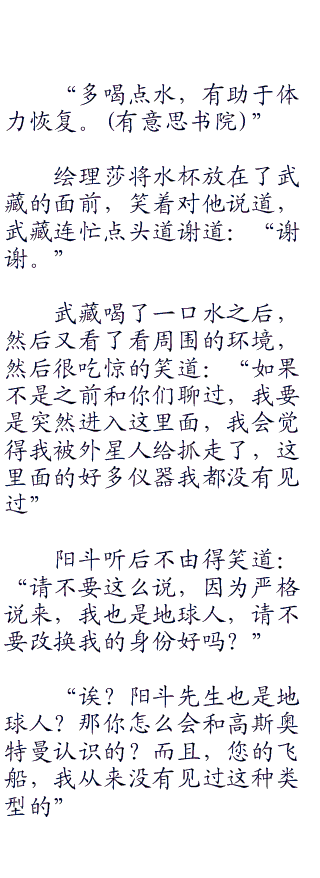 “多喝点水，有助于体
力恢复。(有意思书院)”
绘理莎将水杯放在了武
藏的面前，笑着对他说道，
武藏连忙点头道谢道：“谢
谢。”
武藏喝了一口水之后，
然后又看了看周围的环境，
然后很吃惊的笑道：“如果
不是之前和你们聊过，我要
是突然进入这里面，我会觉
得我被外星人给抓走了，这
里面的好多仪器我都没有见
过”
阳斗听后不由得笑道：
“请不要这么说，因为严格
说来，我也是地球人，请不
要改换我的身份好吗？”
“诶？阳斗先生也是地
球人？那你怎么会和高斯奥
特曼认识的？而且，您的飞
船，我从来没有见过这种类
型的”